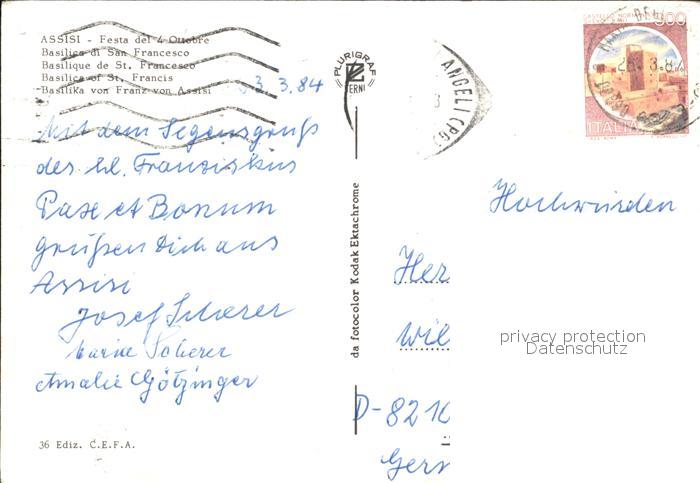 ASSISI - Festa del 4 Ottobre
Basilica di San Francesco
Basilique de St. Francesco
Basilica of St. Francis
Basilika von Franz von Assisi
3.3.84
Mit dem Segensgruß
des hl. Franziskus
Pax et Bonum
grüßen Dich aus
Assisi
Josef Scherer
Marie Scherer
Amalie Götzinger
36 Ediz. C.E.F.A.
PLURIGRAF
TERNI
da fotocolor Kodak Ektachrome
ANGELI (PG)
ITALIA
Hochwürden
Her
Wil
D-8210
Germ
privacy protection
Datenschutz